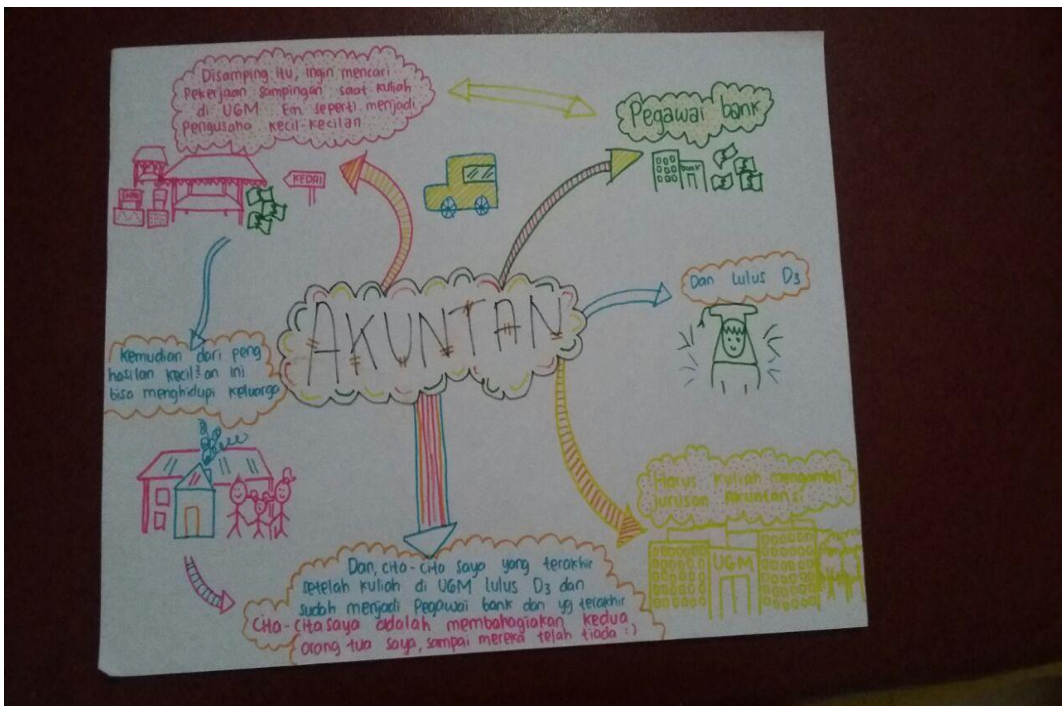 Disamping itu, ingin mencari
Pekerjaan sampingan saat kuliah
di UGM Em seperti menjadi
Pengusaha kecil-kecilan
KEDAI
Pegawai bank
bank
AKUNTAN
Dan Lulus D3
Kemudian dari peng
hasilan kecil²an ini
bisa menghidupi keluarga
Harus kuliah mengambil
jurusan Akuntansi
UGM
Dan, cita-cita saya yang terakhir
setelah kuliah di UGM lulus D3 dan
sudah menjadi Pegawai bank dan yg terakhir
Cita-cita saya adalah membahagiakan kedua
orang tua saya, sampai mereka telah tiada :)